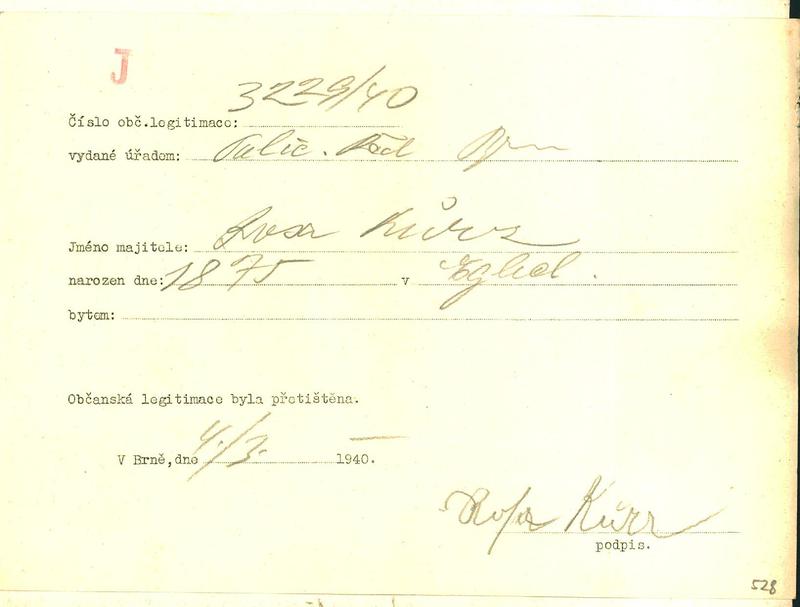 J
Číslo obč.legitimace: 3229/40
vydané úřadem: Polic. řed Brn
Jméno majitele: Rosa Kürz
narozen dne: 1875 v
bytem:
Občanská legitimace byla přetištěna.
V Brně, dne 4./3. 1940.
Rosa Kürz
podpis.
528